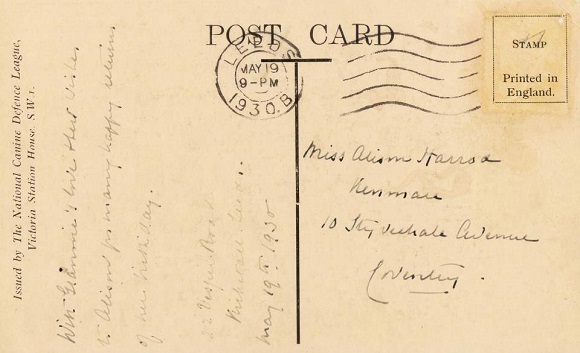 POST CARD
LEEDS
MAY 19
9-PM
1930. B
STAMP
Printed in
England.
Issued by The National Canine Defence League,
Victoria Station House S.W.1.
With Grannie's love & best wishes
to Alison for many happy returns
of her birthday.
Road
Kirkstall Leeds.
May 19th 1930
Miss Alison Harrod
Kenmare
10 Styvechale Avenue
Coventry.